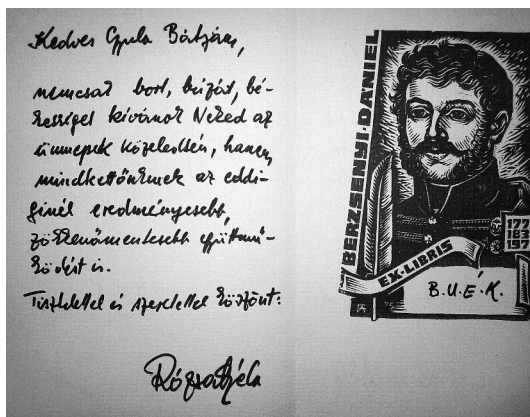 Kedves Gyula Bátyám,
nemcsak bort, búzát, bé-
kességet kívánok Neked az
ünnepek közeledtén, hanem
mindkettőnknek az eddi-
ginél eredményesebb,
zökkenőmentesebb együttmű-
ködést is.
Tisztelettel és szeretettel köszönt:
Rózsa Béla
BERZSENYI·DÁNIEL
177
183
197
EX·LIBRIS
B.U.É.K.